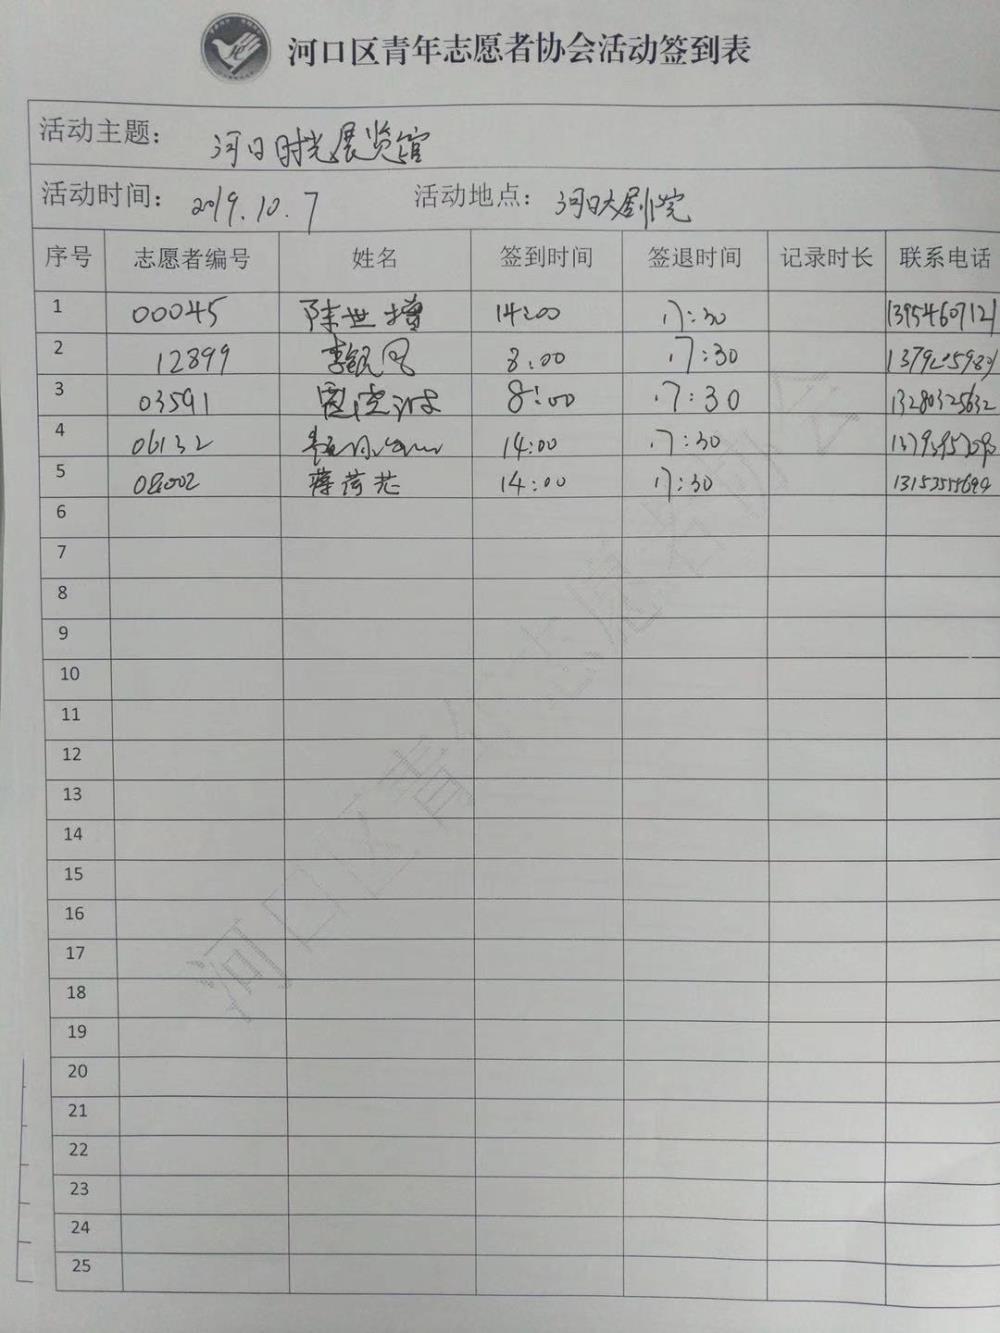 河口区青年志愿者协会活动签到表
活动主题： 河口时光展览馆
活动时间： 2019.10.7 活动地点： 河口大剧院
序号 志愿者编号 姓名 签到时间 签退时间 记录时长 联系电话
1 00045 陈世增 14:00 17:30 13954607121
2 12899 8:00 17:30
3 03591 8:00 17:30 13280325632
4 06132 14:00 17:30
5 14:00 17:30
6
7
8
9
10
11
12
13
14
15
16
17
18
19
20
21
22
23
24
25
河口区青年志愿者协会